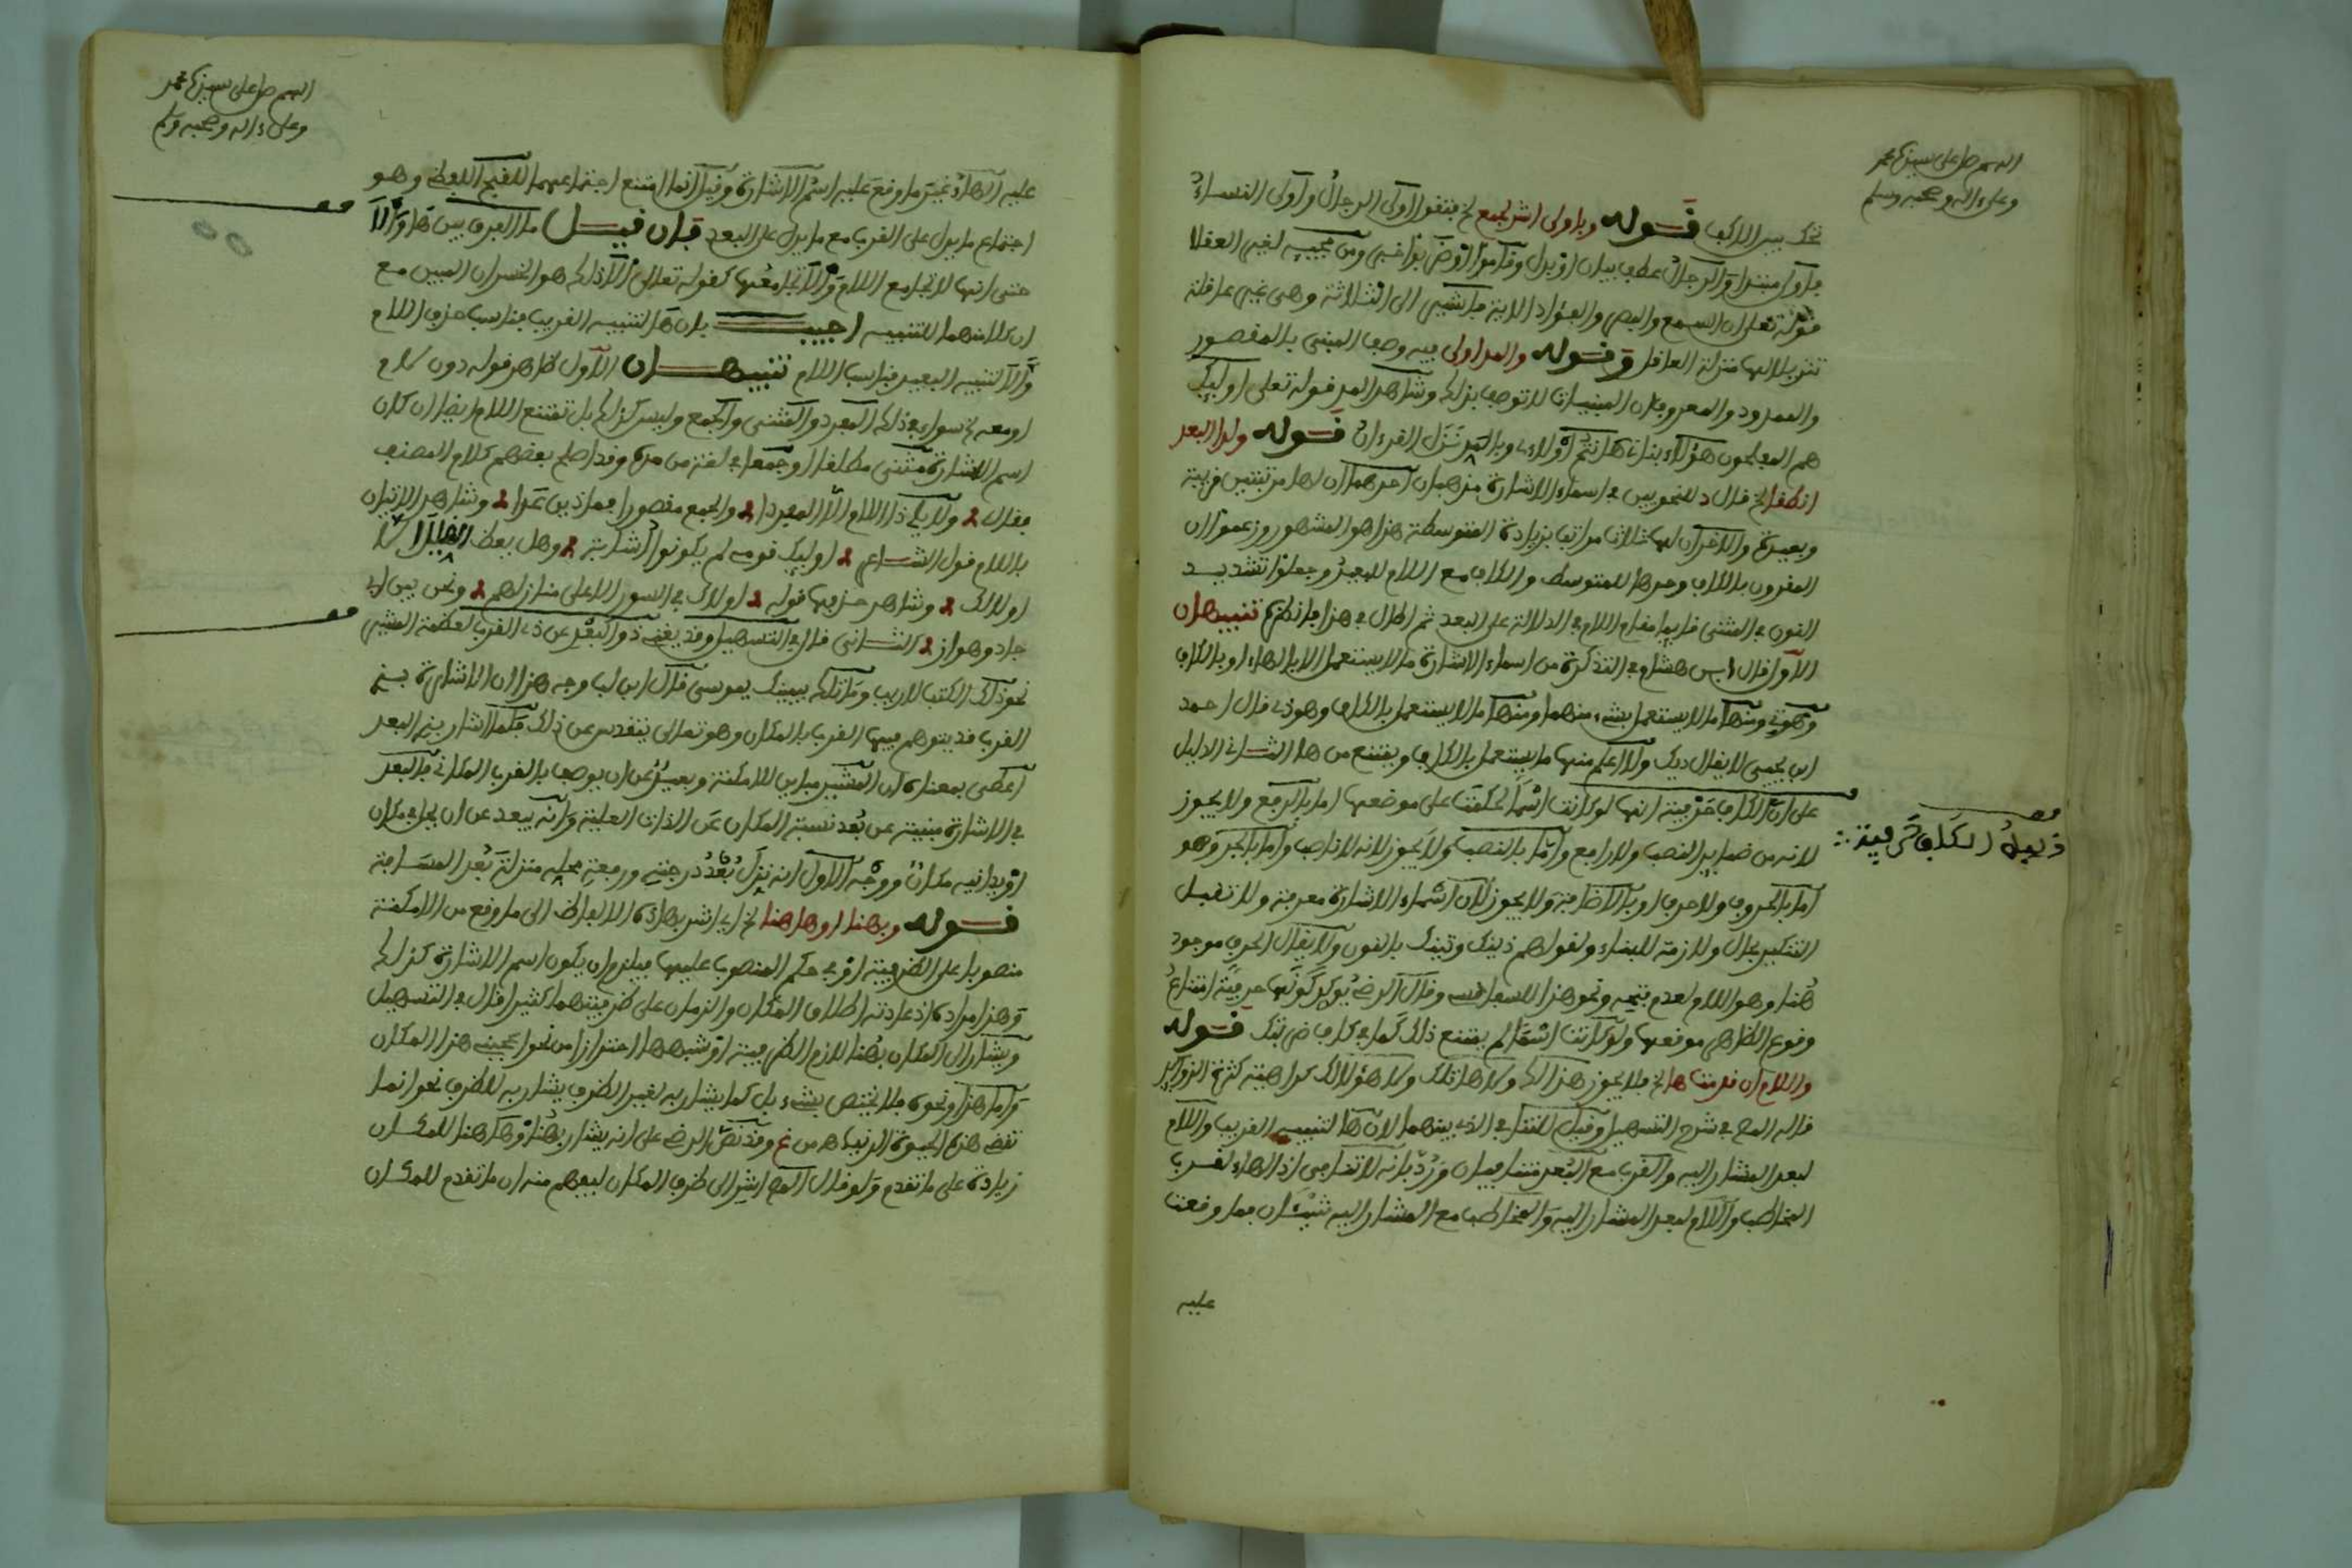 اللهم صل على سيدنا محمد
وعلى ءاله وصحبه وسلم
قوله وباولى اشر لجمع الخ فتقول أولى الرجال وأولى النساء
فأولى مبتدا والرجال عطف بيان او بدل وقاموا او ضربوا خبر ومن مجيئه لغير العقلا
قوله تعلى ان السمع والبصر والفؤاد الاية فاشير الى الثلاثة وهى غير عاقلة
تنزيلا لها منزلة العاقل وقوله والمد اولى فيه وصف المبنى بالمقصور
والممدود والمعروف ان المبنيات لا توصف بذلك وشاهد المد قوله تعلى اوليك
هم المفلحون هؤلاء بناتى هانتم أولاء وبالمد نزل القرءان قوله ولدا البعد
انطقا الخ قال د للنحويين في اسماء الاشارة مذهبان احدهما ان لها مرتبتين قريبة
وبعيدة والاخر ان لها ثلاث مراتب بزيادة المتوسطة هذا هو المشهور وزعموا ان
المقرون بالكاف وحدها للمتوسط والكاف مع اللام للبعيد وجعلوا تشديد
النون في المثنى قايما مقام اللام في الدلالة على البعد ثم اطال في هذا فانظره تنبيهان
الأول قال ابن هشام في التذكرة من اسماء الاشارة ما لا يستعمل الا بالهاء او بالكاف
وهو تي ومنها ما لا يستعمل بشيء منهما ومنها ما لا يستعمل بالكاف وهو ذى قال احمد
ابن يحيى لا يقال ذيك ولا اعلم منها ما يستعمل بالكاف ويمتنع من ها الثانى الدليل
على ان الكاف حرفية انها لو كانت اسما لحكمت على موضعها اما بالرفع ولا يجوز
لانه من ضماير النصب ولا رافع واما بالنصب ولا يجوز لانه لا ناصب واما بالجر وهو
اما بالحروف ولا حرف او بالاضافة ولا يجوز لان اسماء الاشارة معرفة ولا تقبل
التنكير بحال ولازمة للبناء ولقولهم ذينك وتينك بالنون ولا يقال الحرف موجود
هنا وهو اللام لعدم فتحه ونحو هذا للسعد وقال الرضى يؤيد كونها حرفية امتناع
وقوع الظاهر موقعها ولو كانت اسما لم يمتنع ذلك كما في كاف ضربتك قوله
واللام ان قدمت ها الخ فلا يجوز هذا لك ولا هاتلك ولا هؤلالك كراهية كثرة الزوايد
قاله المص في شرح التسهيل وقيل للتنافي الذي بينهما لان ها لتنبيه القريب واللام
لبعد المشار اليه والقرب مع البعد متنافيان ورد بانه لا تنافى اذ الهاء لقرب
المخاطب واللام لبعد المشار اليه والمخاطب مع المشار اليه شيئان فما وقعت
عليه
دليل الكاف حرفية
اللهم صل على سيدنا محمد
وعلى ءاله وصحبه وسلم
عليه الهاء غير ما وقع عليه اسم الاشارة وقيل انما امتنع اجتماعهما للقبح اللفظى وهو
اجتماع ما يدل على القرب مع ما يدل على البعد فان قيل ما الفرق بين ها وألا
حتى انها لا تجامع اللام وألا تجامعها كقوله تعالى ألا ذلك هو الخسران المبين مع
ان كلا منهما للتنبيه اجيب بان ها لتنبيه القريب فناسب حذف اللام
وألا لتنبيه البعيد فناسب اللام تنبيهان الأول ظاهر قوله دون لام
او معه الخ سواء في ذلك المفرد والمثنى والجمع وليس كذلك بل تمتنع اللام ايضا ان كان
اسم الاشارة مثنى مطلقا او جمعا في لغة من مده وقد اصلح بعضهم كلام المصنف
فقال ولا يلى ذا اللام الا المفردا والجمع مقصورا فماذين عدا وشاهد الاتيان
باللام قول الشاعر اوليك قومى لم يكونوا أشابة وهل يعظ الضليل الا
اولالك وشاهد حذفها قوله
جاد وهوازن الثانى قال في التسهيل وقد يغنى ذو البعد عن ذى القرب لعظمة المشير
نحو ذلك الكتب لا ريب وما تلك بيمينك يموسى قال ابن لب وجه هذا ان الاشارة بذى
القرب قد يتوهم فيها القرب بالمكان وهو تعالى يتقدس عن ذلك فلما اشار بذى البعد
اعطى بمعناه ان المشير مباين للامكنة وبعيد عن ان يوصف بالقرب المكانى فالبعد
في الاشارة منبية عن بعد نسبة المكان عن الذات العلية وانه يبعد عن ان يحل في مكان
او يدانيه مكان ووجه الاول انه نزل بعد درجته ورفعة محله منزلة بعد المسافة
قوله وبهنا او هاهنا الخ اى اشر بهاذه الالفاظ الى ما وقع من الامكنة
منصوبا على الظرفية او في حكم المنصوب عليها فيلزم ان يكون اسم الاشارة كذلك
وهذا مراده اذ عادته اطلاق المكان والزمان على ظرفيتهما كثيرا قال في التسهيل
ويشار الى المكان بهنا لازم الظرفية او شبهها احترازا من نحو اعجبنى هذا المكان
واما هذا ونحوه فلا يختص بشيء بل كما يشار به لغير الظرف يشار به للظرف نحو انما
تقضى هذه الحيوة الدنيا وقد نص الرضى على انه يشار بهنا وهاهنا للمكان
زيادة على ما تقدم ولو قال المص اشر الى ظرف المكان ليفهم منه ان ما تقدم للمكان